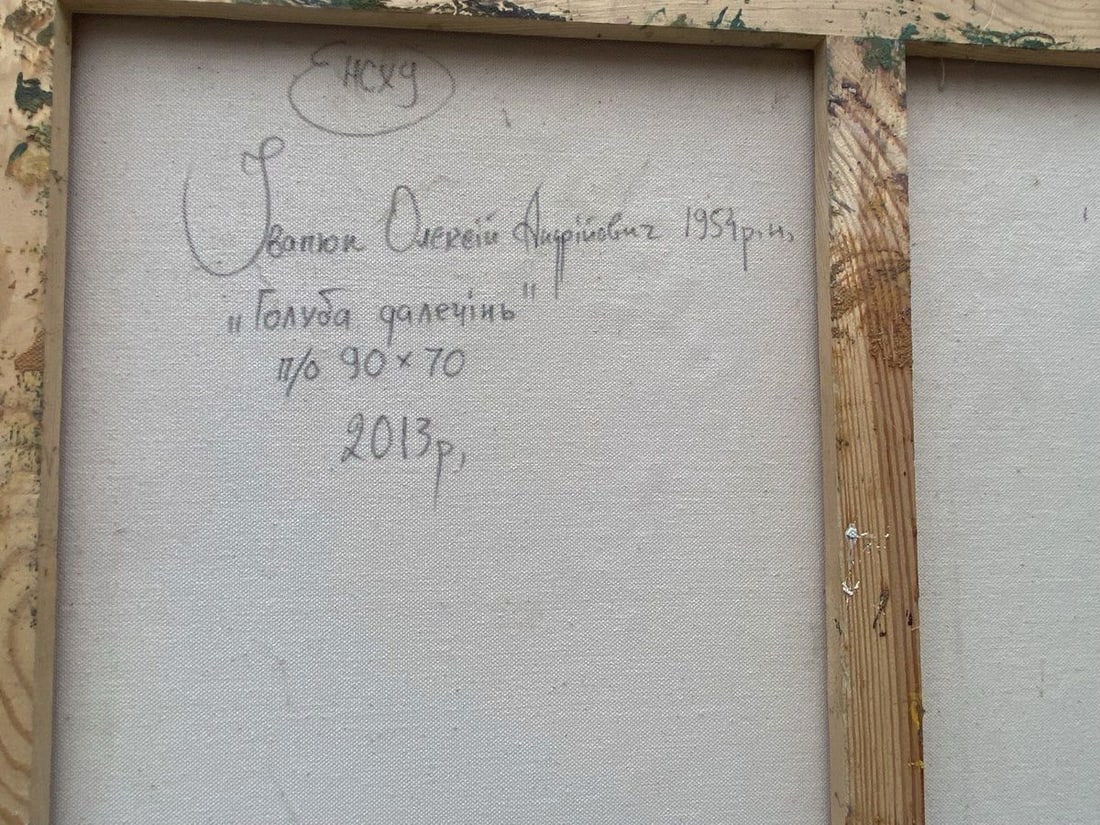 НСХУ
Іванюк Олексій Андрійович 1954р.н,
„Голуба далечінь"
п/о 90×70
2013р,